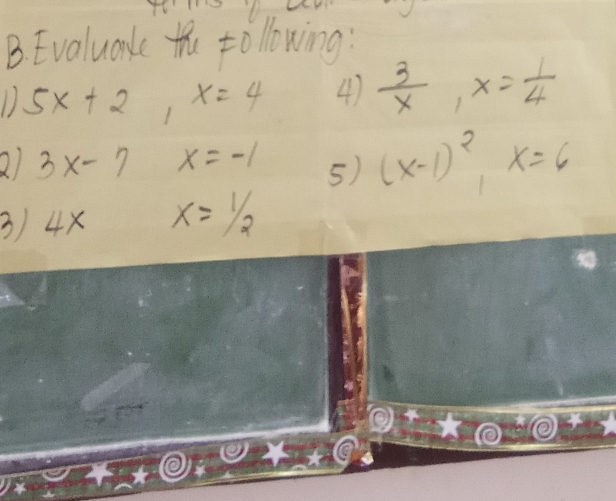 B. Evaluate the following:
1) 5x + 2 , x = 4
2) 3x - 7 x = -1
3) 4x x = 1/2
4) 3/x , x = 1/4
5) (x-1)², x = 6